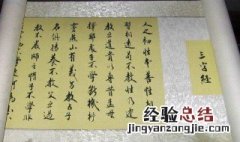 三字經
人之初性本善性相
近習相遠苟不教性乃遷
教之道貴以專昔孟母
擇鄰處子不學斷機杼
竇燕山有義方教五子
名俱揚養不教父之過
教不嚴師之惰子不學非
经验总结
jingyanzongjie.com